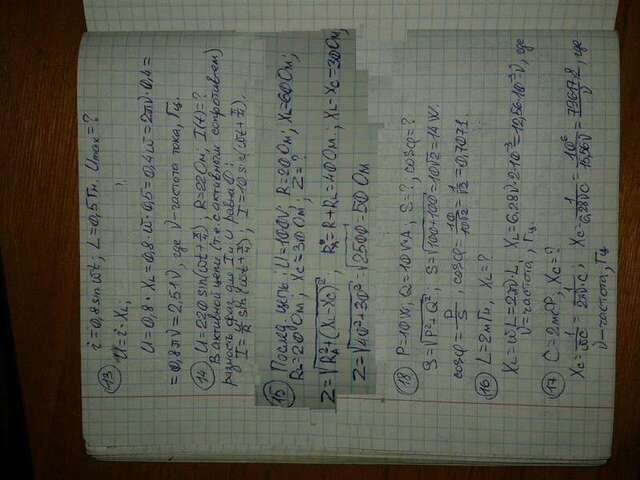 13 i = 0,8 sin ωt; L = 0,5 Гн. Umax = ?
U = i · XL;
U = 0,8 · XL = 0,8 · ω · 0,5 = 0,4 ω = 2πν · 0,4 =
= 0,8πν = 2,51ν, где ν - частота тока, Гц.
14 U = 220 sin(ωt + π/2), R = 22 Ом; I(t) = ?
В активной цепи (т.е. с активным сопротивлением)
разность фаз для I и U равна 0;
I = U/R sin(ωt + π/2), I = 10 sin(ωt + π/2).
15 Послед цепь; U = 100V; R = 20 Ом; XL = 60 Ом;
Rл = 20 Ом; Xc = 30 Ом; Z = ?
Z = √(R²+(XL-Xc)²), R = R + RL = 40 Ом; XL-Xc = 30 Ом,
Z = √(40²+30²) = √2500 = 50 Ом
18 P = 10W, Q = 10 V·A, S = ?, cosφ = ?
S = √(P²+Q²), S = √(100+100) = 10√2 = 14 W.
cosφ = P/S, cosφ = 10/10√2 = 1/√2 = 0,7071
16 L = 2мГн, XL = ?
XL = ωL = 2πν·L, XL = 6,28ν·2·10⁻³ = 12,56·10⁻³ν, где
ν - частота, Гц.
17 C = 2мСР; Xc = ?
Xc = 1/ωC = 1/2πν·C, Xc = 1/6,28νC = 10⁶/12,56ν = 79617,8/ν, где
ν - частота, Гц